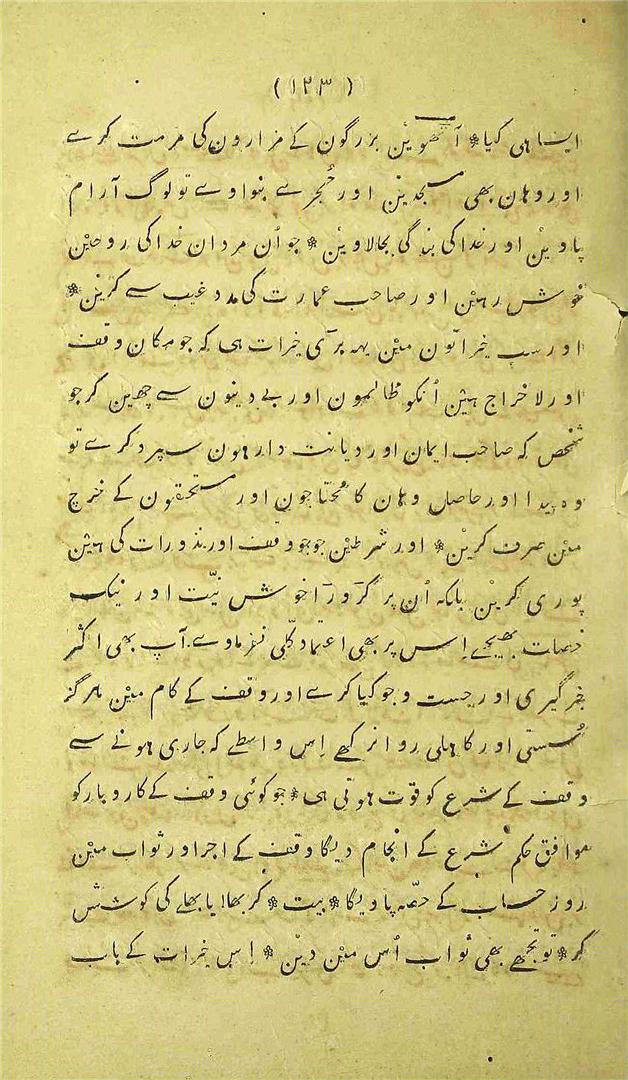 (۱۲۳)
ایسا ہی کیا * آٹھویں بزرگون کے مزارون کی مرمت کرے
اور وہان بھی مسجدین اور حُجرے بنواوے تو لوگ آرام
پاویں اور خدا کی بندگی بجا لاویں * جو اُن مردان خدا کی روحین
خوش رہین اور صاحب عمارت کی مدد غیب سے کرین *
اور سب خیراتون مین یہہ بڑی خیرات ہی کہ جو مکان وقف
اور لاخراج ہین اُنکو ظالمون اور بے دینون سے چھین کر جو
شخص کہ صاحب ایمان اور دیانت دار ہون سپرد کرے تو
وہ پیدا اور حاصل وہان کا محتاجون اور مستحقون کے خرچ
مین صرف کرین * اور شرطین جو جو وقف اور نذورات کی ہین
پوری کرین بلکہ اُن پر کڑوڑا خوش نیّت اور نیک
خصلت بھیجے اِس پر بھی اعتماد کُلّی نفرماوے آپ بھی اکثر
خبر گیری اور جست و جو کیا کرے اور وقف کے کام مین ہرگز
سُستی اور کاہلی روا نرکھے اِس واسطے کہ جاری ہونے سے
وقف کے شرع کو قوت ہوتی ہی * جو کوئی وقف کے کاروبار کو
موافق حکم شرع کے انجام دیگا وقف کے اجر اور ثواب مین
روز حساب کے حصّہ پاویگا * بیت * کر بھلا یا بھلے کی کوشش
کر * تو تجھے بھی ثواب اُس مین دین * اِس خیرات کے باب